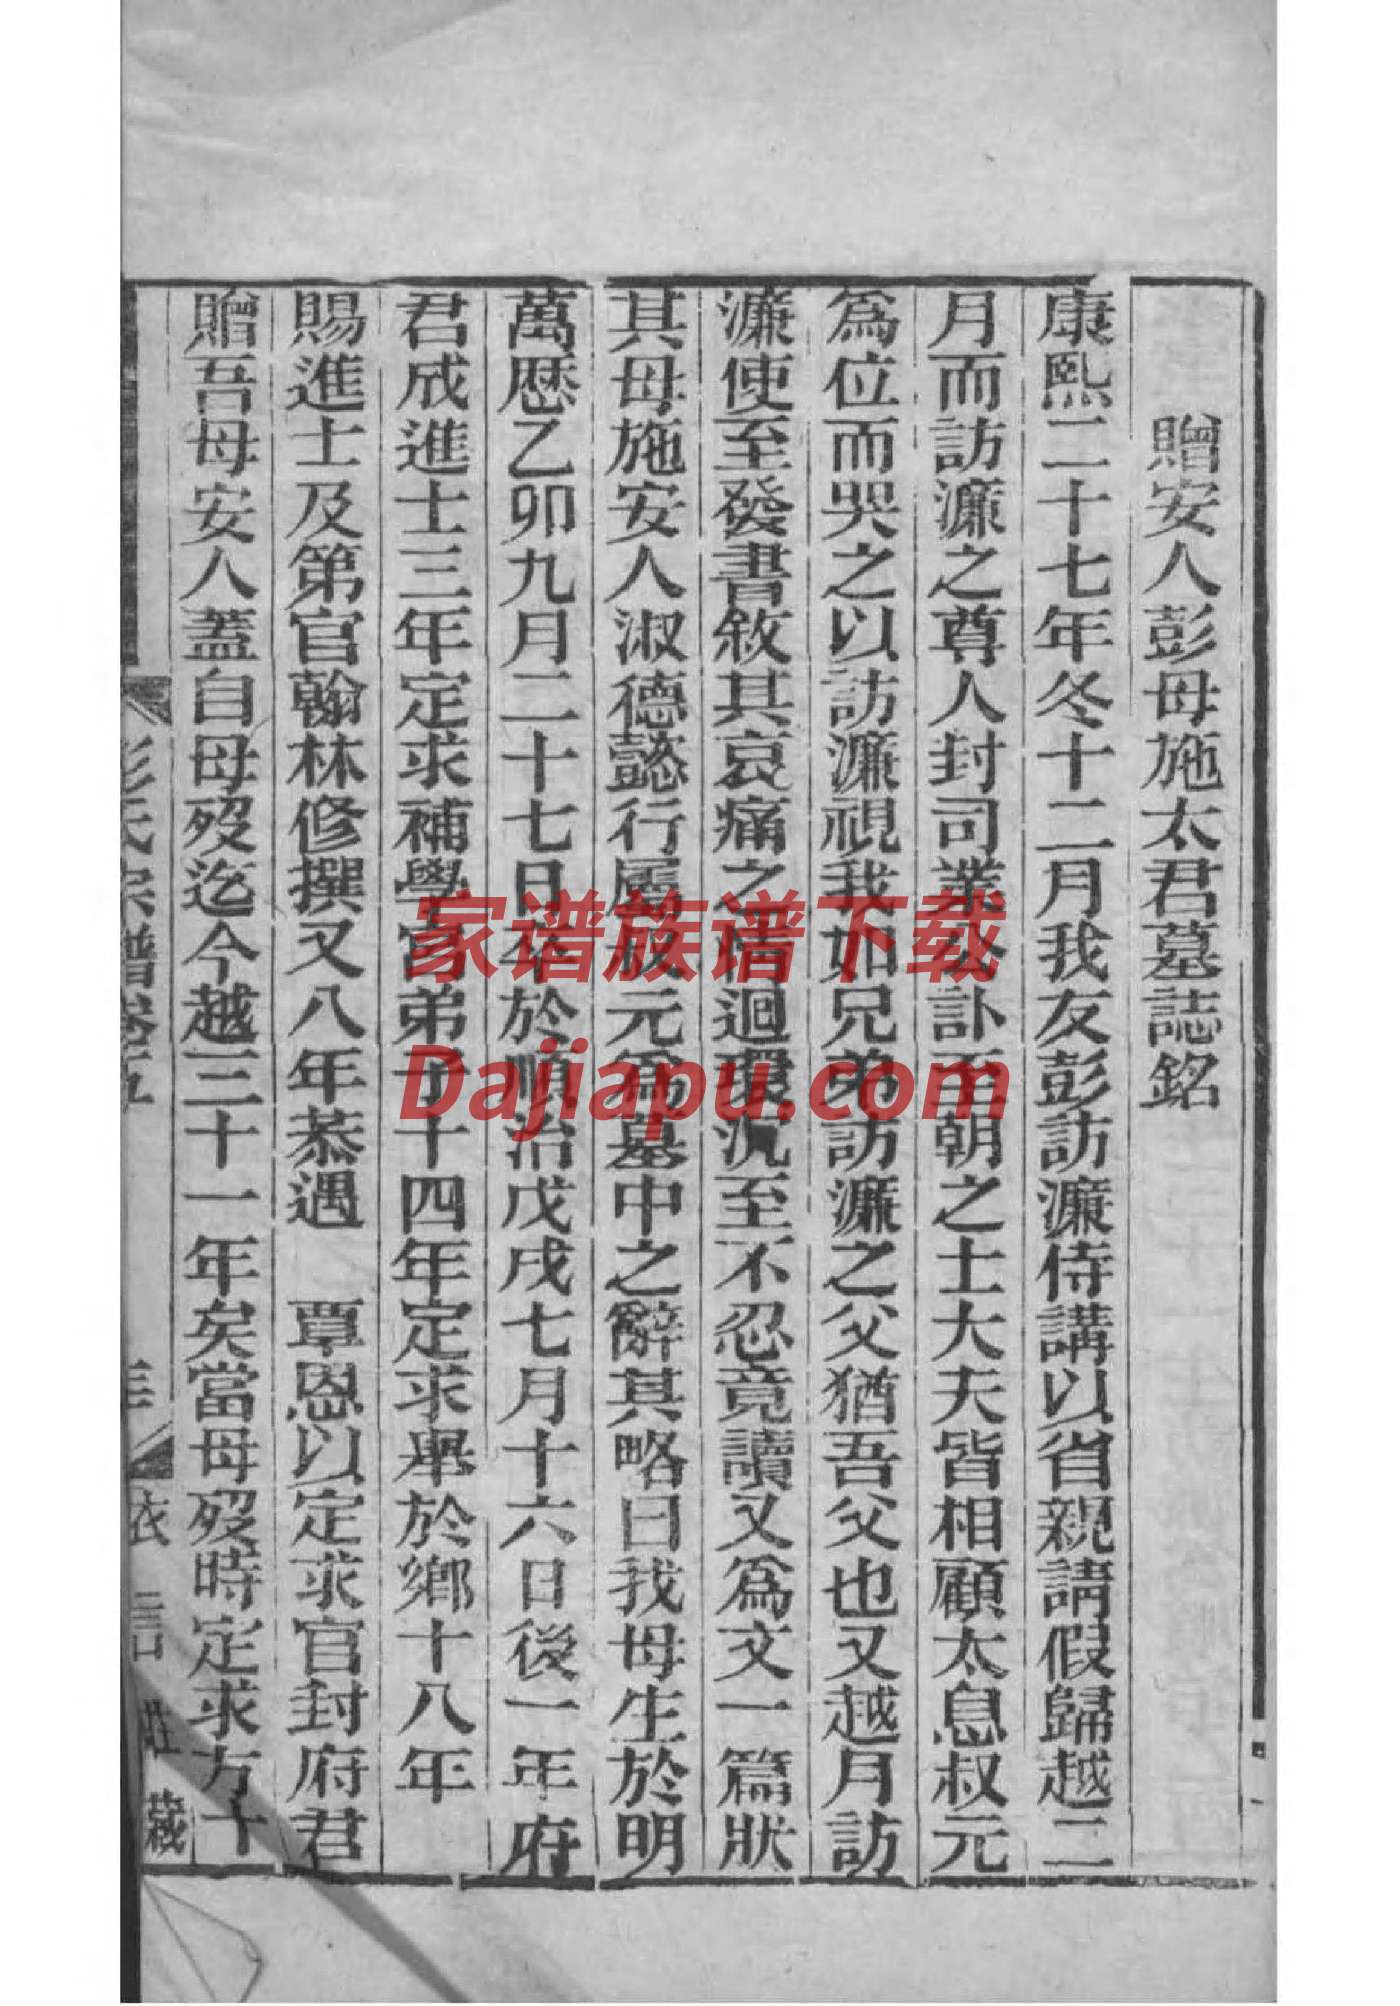 贈安人彭母施太君墓誌銘
康熙二十七年冬十二月我友彭訪濂侍講以省親請假歸越二
月而訪濂之尊人封司業公訃至朝之士大夫皆相顧太息叔元
為位而哭之以訪濂視我如兄弟訪濂之父猶吾父也又越月訪
濂使至發書敘其哀痛之情迴環沉至不忍竟讀又為文一篇狀
其母施安人淑德懿行屬叔元為墓中之辭其略曰我母生於明
萬歷乙卯九月二十七日卒於順治戊戌七月十六日後一年府
君成進士三年定求補學官弟子十四年定求舉於鄉十八年
賜進士及第官翰林修撰又八年恭遇　覃恩以定求官封府君
贈吾母安人蓋自母歿迄今越三十一年矣當母歿時定求方十
彭氏宗譜卷五
三
衣言莊藏
家谱族谱下载
Dajiapu.com